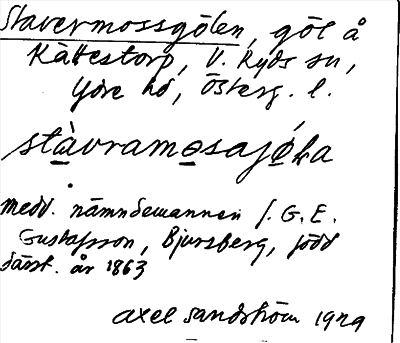 Stavermossgölen, göl å
Kättestorp, V. Ryds sn,
Ydre hd, Österg. l.
stàvramo̲sajǿ̲ka
medd. nämndemannen f. G. E.
Gustafsson, Bjursberg, född
därst. år 1863
Axel Sandström 1929